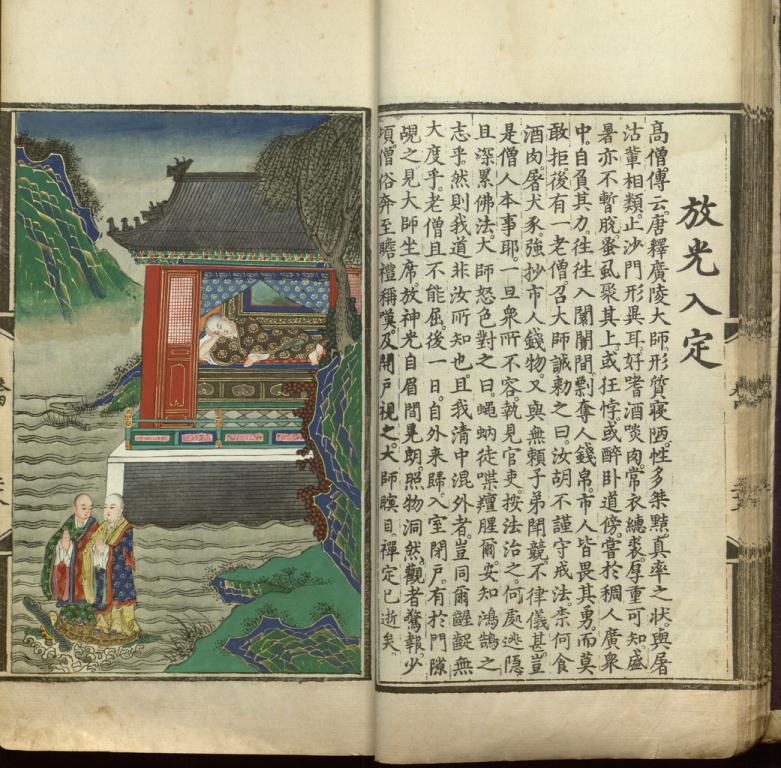 放光入定
高僧傳云。唐釋廣陵大師。形質寢陋。性多桀黠。真率之狀。與屠
沽輩相類。止沙門形異耳。好嗜酒啖肉。常衣繐裘。厚重可知。盛
暑亦不暫脫。蚤虱聚其上。或狂悖。或醉卧道傍。嘗於稠人廣衆
中。自負其力。往往入闤闠間。剽奪人錢帛。市人皆畏其勇。而莫
敢拒。後有一老僧。召大師誡勅之曰。汝胡不謹守戒法。柰何食
酒肉。屠犬豕。強抄市人錢物。又與無賴子弟鬪競。不律儀甚。豈
是僧人本事耶。一旦衆所不容。執見官吏。按法治之。何處逃隱。
且深累佛法。大師怒色對之曰。蠅蚋徒喋羶腥爾。安知鴻鵠之
志乎。然則我道非汝所知也。且我清中混外者。豈同爾齷齪無
大度乎。老僧且不能屈。後一日。自外來歸。入室閉戶。有於門隙
覘之。見大師坐席。放神光自眉間晃朗。照物洞然。觀者驚報。少
頃。僧俗奔至。瞻禮稱嘆。及開戶視之。大師瞑目。禪定已逝矣。